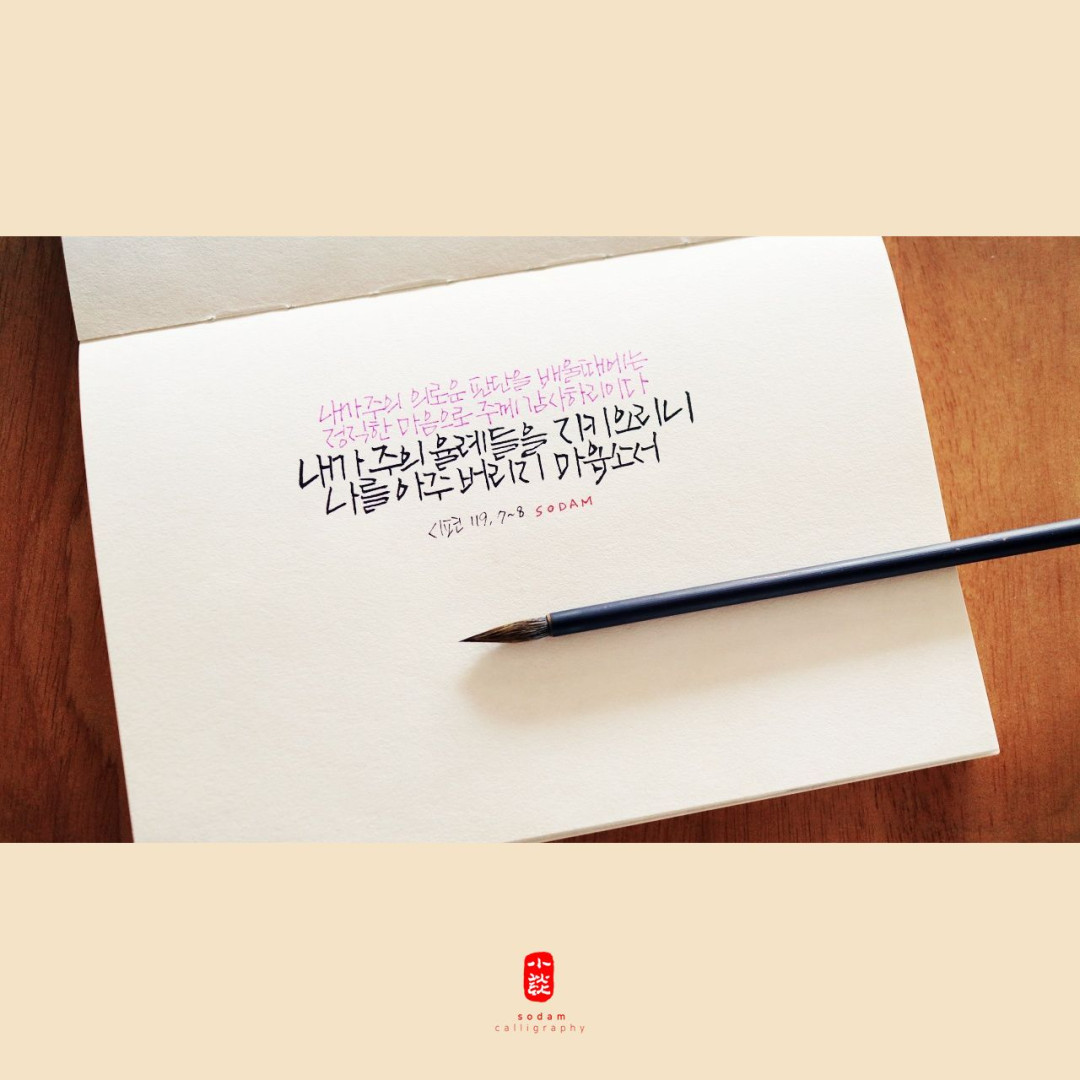 내가 주의 의로운 판단을 배울 때에는
정직한 마음으로 주께 감사하리이다
내가 주의 율례들을 지키오리니
나를 아주 버리지 마옵소서
시편 119, 7~8 SODAM
小
sodam
calligraphy